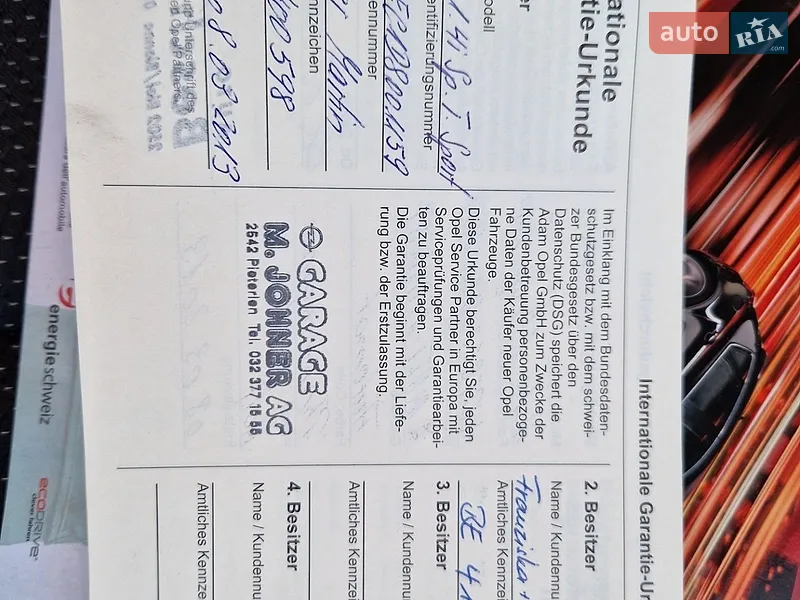 auto RIA
.com
nationale
tie-Urkunde
odell
1.4i Sp. T. Sport
entifizierungsnummer
ennummer
Martin
nnzeichen
08.03.2013
Im Einklang mit dem Bundesdaten-
schutzgesetz bzw. mit dem schwei-
zer Bundesgesetz über den
Datenschutz (DSG) speichert die
Adam Opel GmbH zum Zwecke der
Kundenbetreuung personenbezoge-
ne Daten der Käufer neuer Opel
Fahrzeuge.
Diese Urkunde berechtigt Sie, jeden
Opel Service Partner in Europa mit
Serviceprüfungen und Garantiearbei-
ten zu beauftragen.
Die Garantie beginnt mit der Liefe-
rung bzw. der Erstzulassung.
GARAGE
M. JOHNER AG
2542 Pieterlen Tel. 032 377 15 55
Internationale Garantie-Ur
2. Besitzer
Name / Kundennu
Franziska
Amtliches Kennze
BE 41
3. Besitzer
Name / Kundennu
Amtliches Kennzei
4. Besitzer
Name / Kundennu
Amtliches Kennze
energieschweiz
ECODRIVE
clever fahren